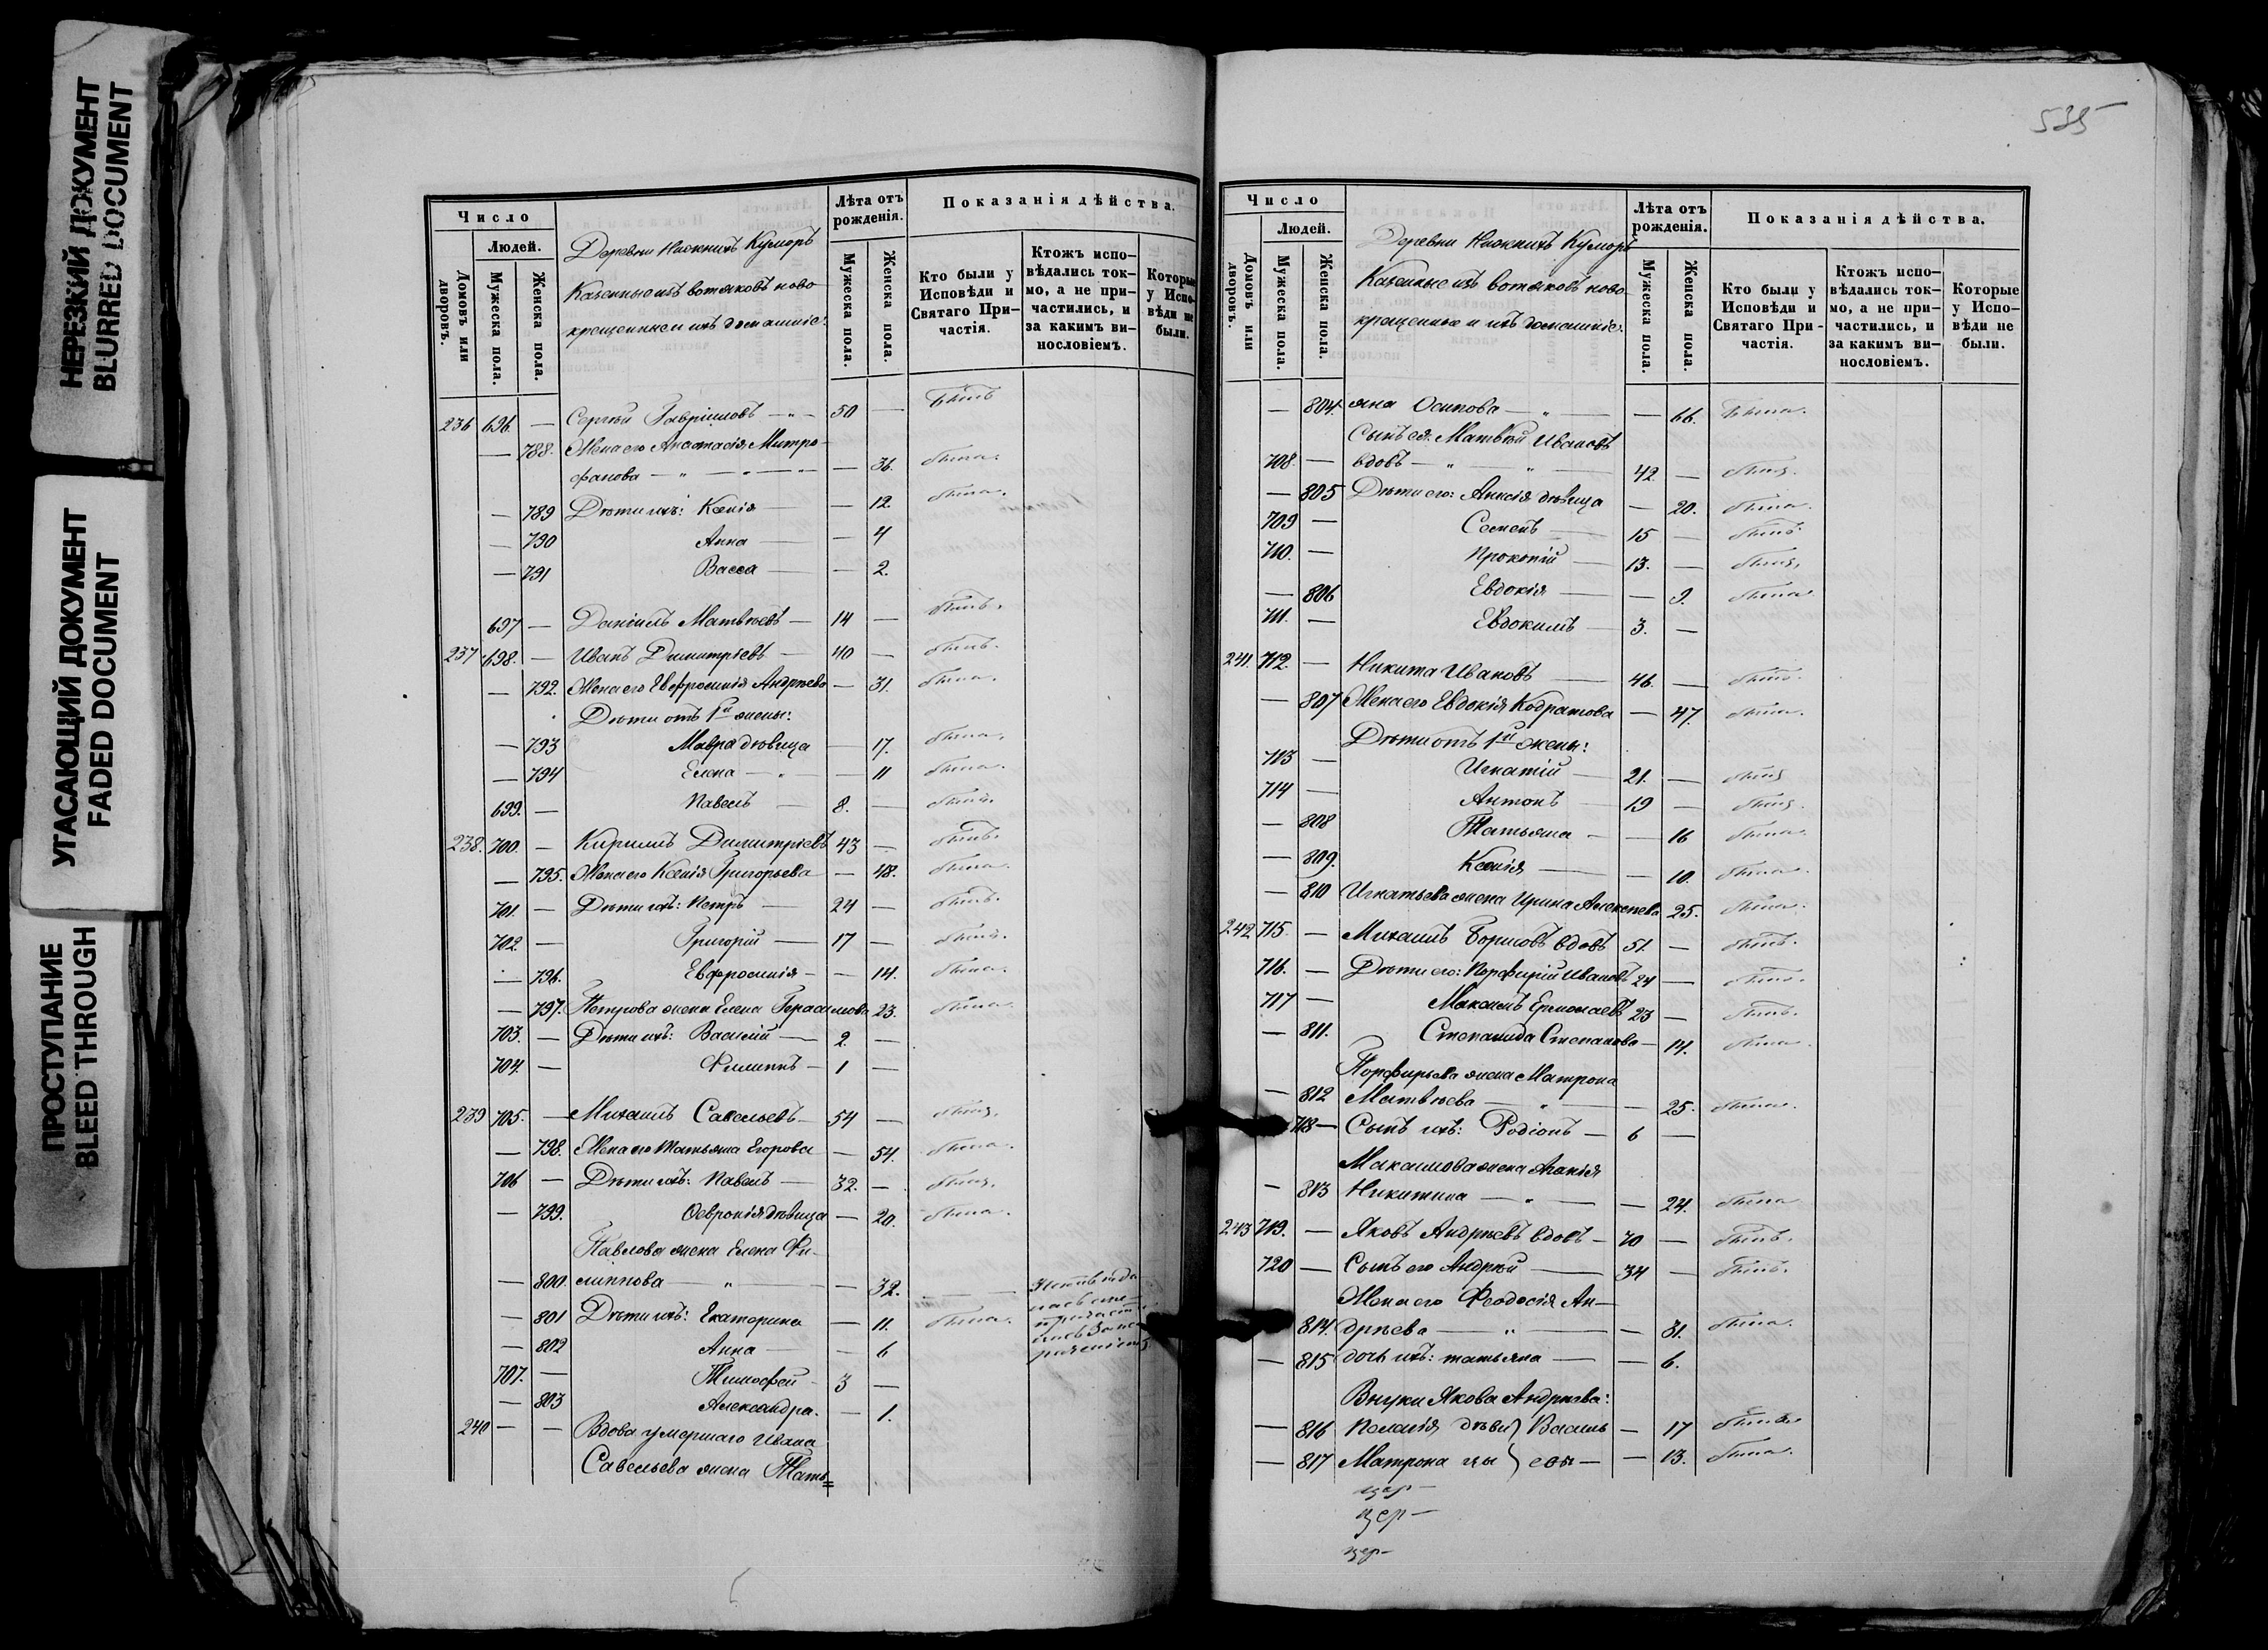 НЕРЕЗКИЙ ДОКУМЕНТ
BLURRED DOCUMENT
УГАСАЮЩИЙ ДОКУМЕНТ
FADED DOCUMENT
ПРОСТУПАНИЕ
BLEED THROUGH
Число
Людей.
Домовъ или дворовъ.
Мужеска пола.
Женска пола.
Деревни Нижнихъ Куморъ
Казенные изъ вотяковъ ново-
крещенные и ихъ домашніе:
Лѣта отъ рожденія.
Мужеска пола.
Женска пола.
Показанія дѣйства.
Кто были у Исповѣди и Святаго Причастія.
Ктожъ испо-
вѣдались ток-
мо, а не при-
частились, и
за какимъ ви-
нословіемъ.
Которые
у Испо-
вѣди не
были.
236 696. — Сергѣй Гавріиловъ — 50 — былъ
— 788. Жена его Анастасія Митро-
фанова — — 36. была.
— 789 Дѣти ихъ: Ксенія — — 12. была.
— 790 Анна — — 4
— 791 Васса — — 2.
697 — Даніилъ Матвѣевъ — 14 — былъ.
237 698. — Иванъ Димитріевъ — 40 — былъ.
— 792. Жена его Евфросинія Андрѣева — 31. была.
Дѣти отъ 1й жены:
— 793 Мавра дѣвица — 17. была.
— 794 Елена — — 11 была.
699. — Павелъ — 8. — былъ.
238. 700. — Кириллъ Димитріевъ 43 — былъ.
— 795. Жена его Ксенія Григорьева — 48. была.
701. — Дѣти ихъ: Петръ — 24 — былъ.
702. — Григорій — 17 — былъ.
— 796. Евфросинія — — 14. была.
— 797. Петрова жена Елена Герасимова 23. была.
703. — Дѣти ихъ: Василій — 2. —
704. — Филиппъ — 1 —
239 705. — Михаилъ Савельевъ — 54 — былъ.
— 798. Жена его Татьяна Егорова — 54. была.
706 — Дѣти ихъ: Павелъ — 32. — былъ.
— 799. Февронія дѣвица — 20. была.
Павлова жена Елена Фи-
— 800. липпова — — 32. —
— 801 Дѣти ихъ: Екатерина — 11. была.
— 802 Анна — — 6
707. — Тимофей — 3 —
— 803 Александра. — 1.
240 — — Вдова умершаго Ивана
Савельева жена Тать=
535
Число
Людей.
Домовъ или дворовъ.
Мужеска пола.
Женска пола.
Деревни Нижнихъ Куморъ
Казенные изъ вотяковъ ново-
крещенные и ихъ домашніе:
Лѣта отъ рожденія.
Мужеска пола.
Женска пола.
Показанія дѣйства.
Кто были у
Исповѣди и
Святаго При-
частія.
Ктожъ испо-
вѣдались ток-
мо, а не при-
частились, и
за какимъ ви-
нословіемъ.
Которые
у Испо-
вѣди не
были.
— 804. яна Осипова — — 66. была.
Сынъ ея: Матвѣй Ивановъ
708. — вдовъ — 42. — былъ.
— 805 Дѣти его: Анисія дѣвица — 20. была.
709 — Семенъ — 15 — былъ.
710. — Прокопій — 13. — былъ.
— 806 Евдокія — — 9. была.
711. — Евдокимъ — 3. —
241. 712. — Никита Ивановъ — 46. — былъ.
— 807 Жена его Евдокія Кодратова — 47. была.
Дѣти отъ 1й жены:
713 — Игнатій — 21. — былъ
714 — Антонъ — 19 — былъ.
— 808 Татьяна — — 16 была.
— 809. Ксенія — — 10. была.
— 810 Игнатьева жена Ирина Алексѣева 25. была.
242 715. — Михаилъ Борисовъ вдовъ 51. — былъ.
716. — Дѣти его: Порфирій Ивановъ 24 — былъ.
717 — Максимъ Ермолаевъ 23 — былъ.
— 811. Степанида Степанова — 14. была.
Порфирьева жена Матрона
— 812 Матвѣева — — 25. была.
718 — Сынъ ихъ: Родіонъ — 6 —
Максимова жена Агапія
— 813 Никитина — — 24. была
243 719. — Яковъ Андрѣевъ вдовъ — 70 — былъ.
720 — Сынъ его Андрѣй — 34 — былъ.
Жена его Феодосія Ан-
814. дрѣева — — 31. была.
— 815 дочь ихъ: татьяна — — 6.
Внуки Якова Андрѣева:
— 816 Пелагія дѣви} Василь — 17 была
— 817 Матрона цы } евы — — 13. была.